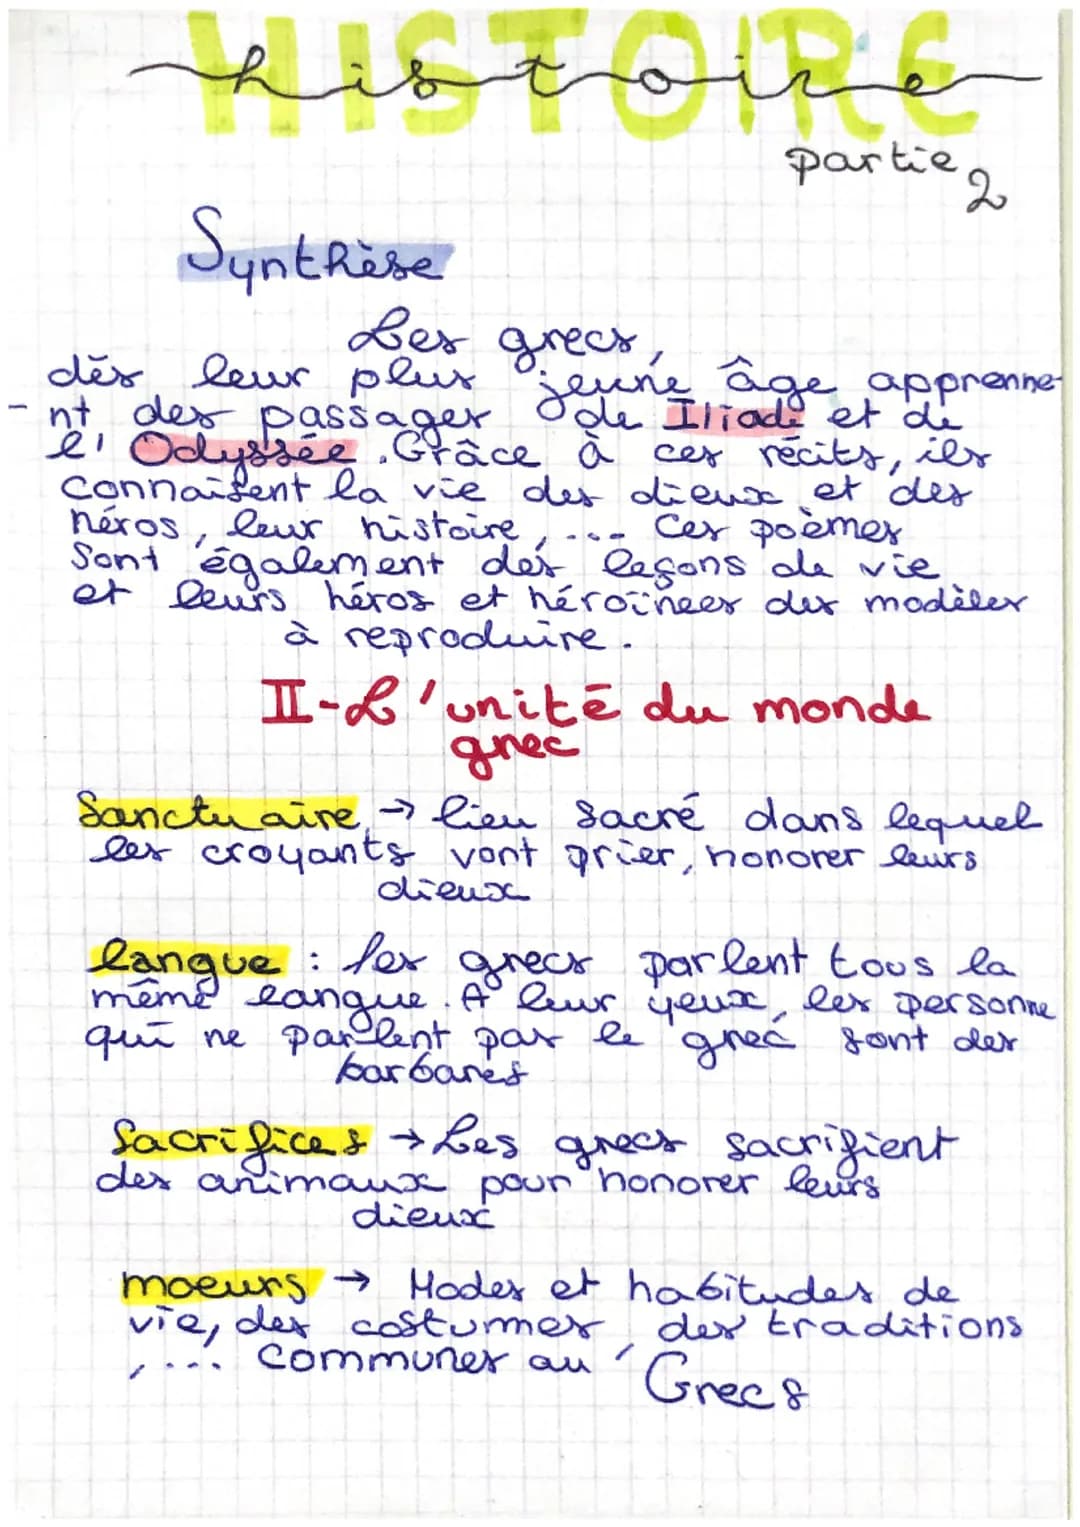 HISTOIRE
histoire
partie 2
Synthèse
Les grecs,
dès leur plus jeune âge apprenne-
-nt des passages de Iliade et de
l'Odyssée. Grâce à ces récits, ils
connaissent la vie des dieux et des
héros, leur histoire, ... Ces poèmes
Sont également des leçons de vie
et leurs héros et héroïnees des modèles
à reproduire.
II-L'unité du monde
grec
Sanctuaire → lieu sacré dans lequel
les croyants vont prier, honorer leurs
dieux
langue : les grecs parlent tous la
même langue. A leur yeux, les personne
qui ne parlent pas le grec sont des
barbares
Sacrifices → Les grecs sacrifient
des animaux pour honorer leurs
dieux
moeurs → Modes et habitudes de
vie, des costumes, des traditions
,... communes au Grecs